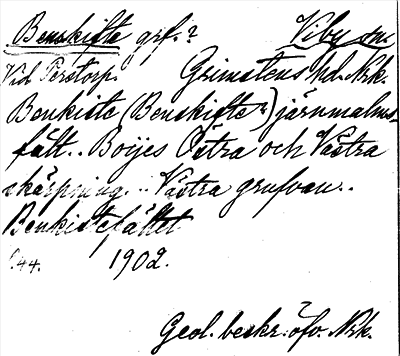 Benskifte grf.? Viby sn
Vid Perstorp. Grimstens hd. Nrk.
Benkiste (Benskifte?) järnmalms-
fält.. Boijes Östra och Västra
skärpning... Västra grufvan..
Benkistefältet
s.44. 1902.
Geol. beskr. öfv. Nrk.